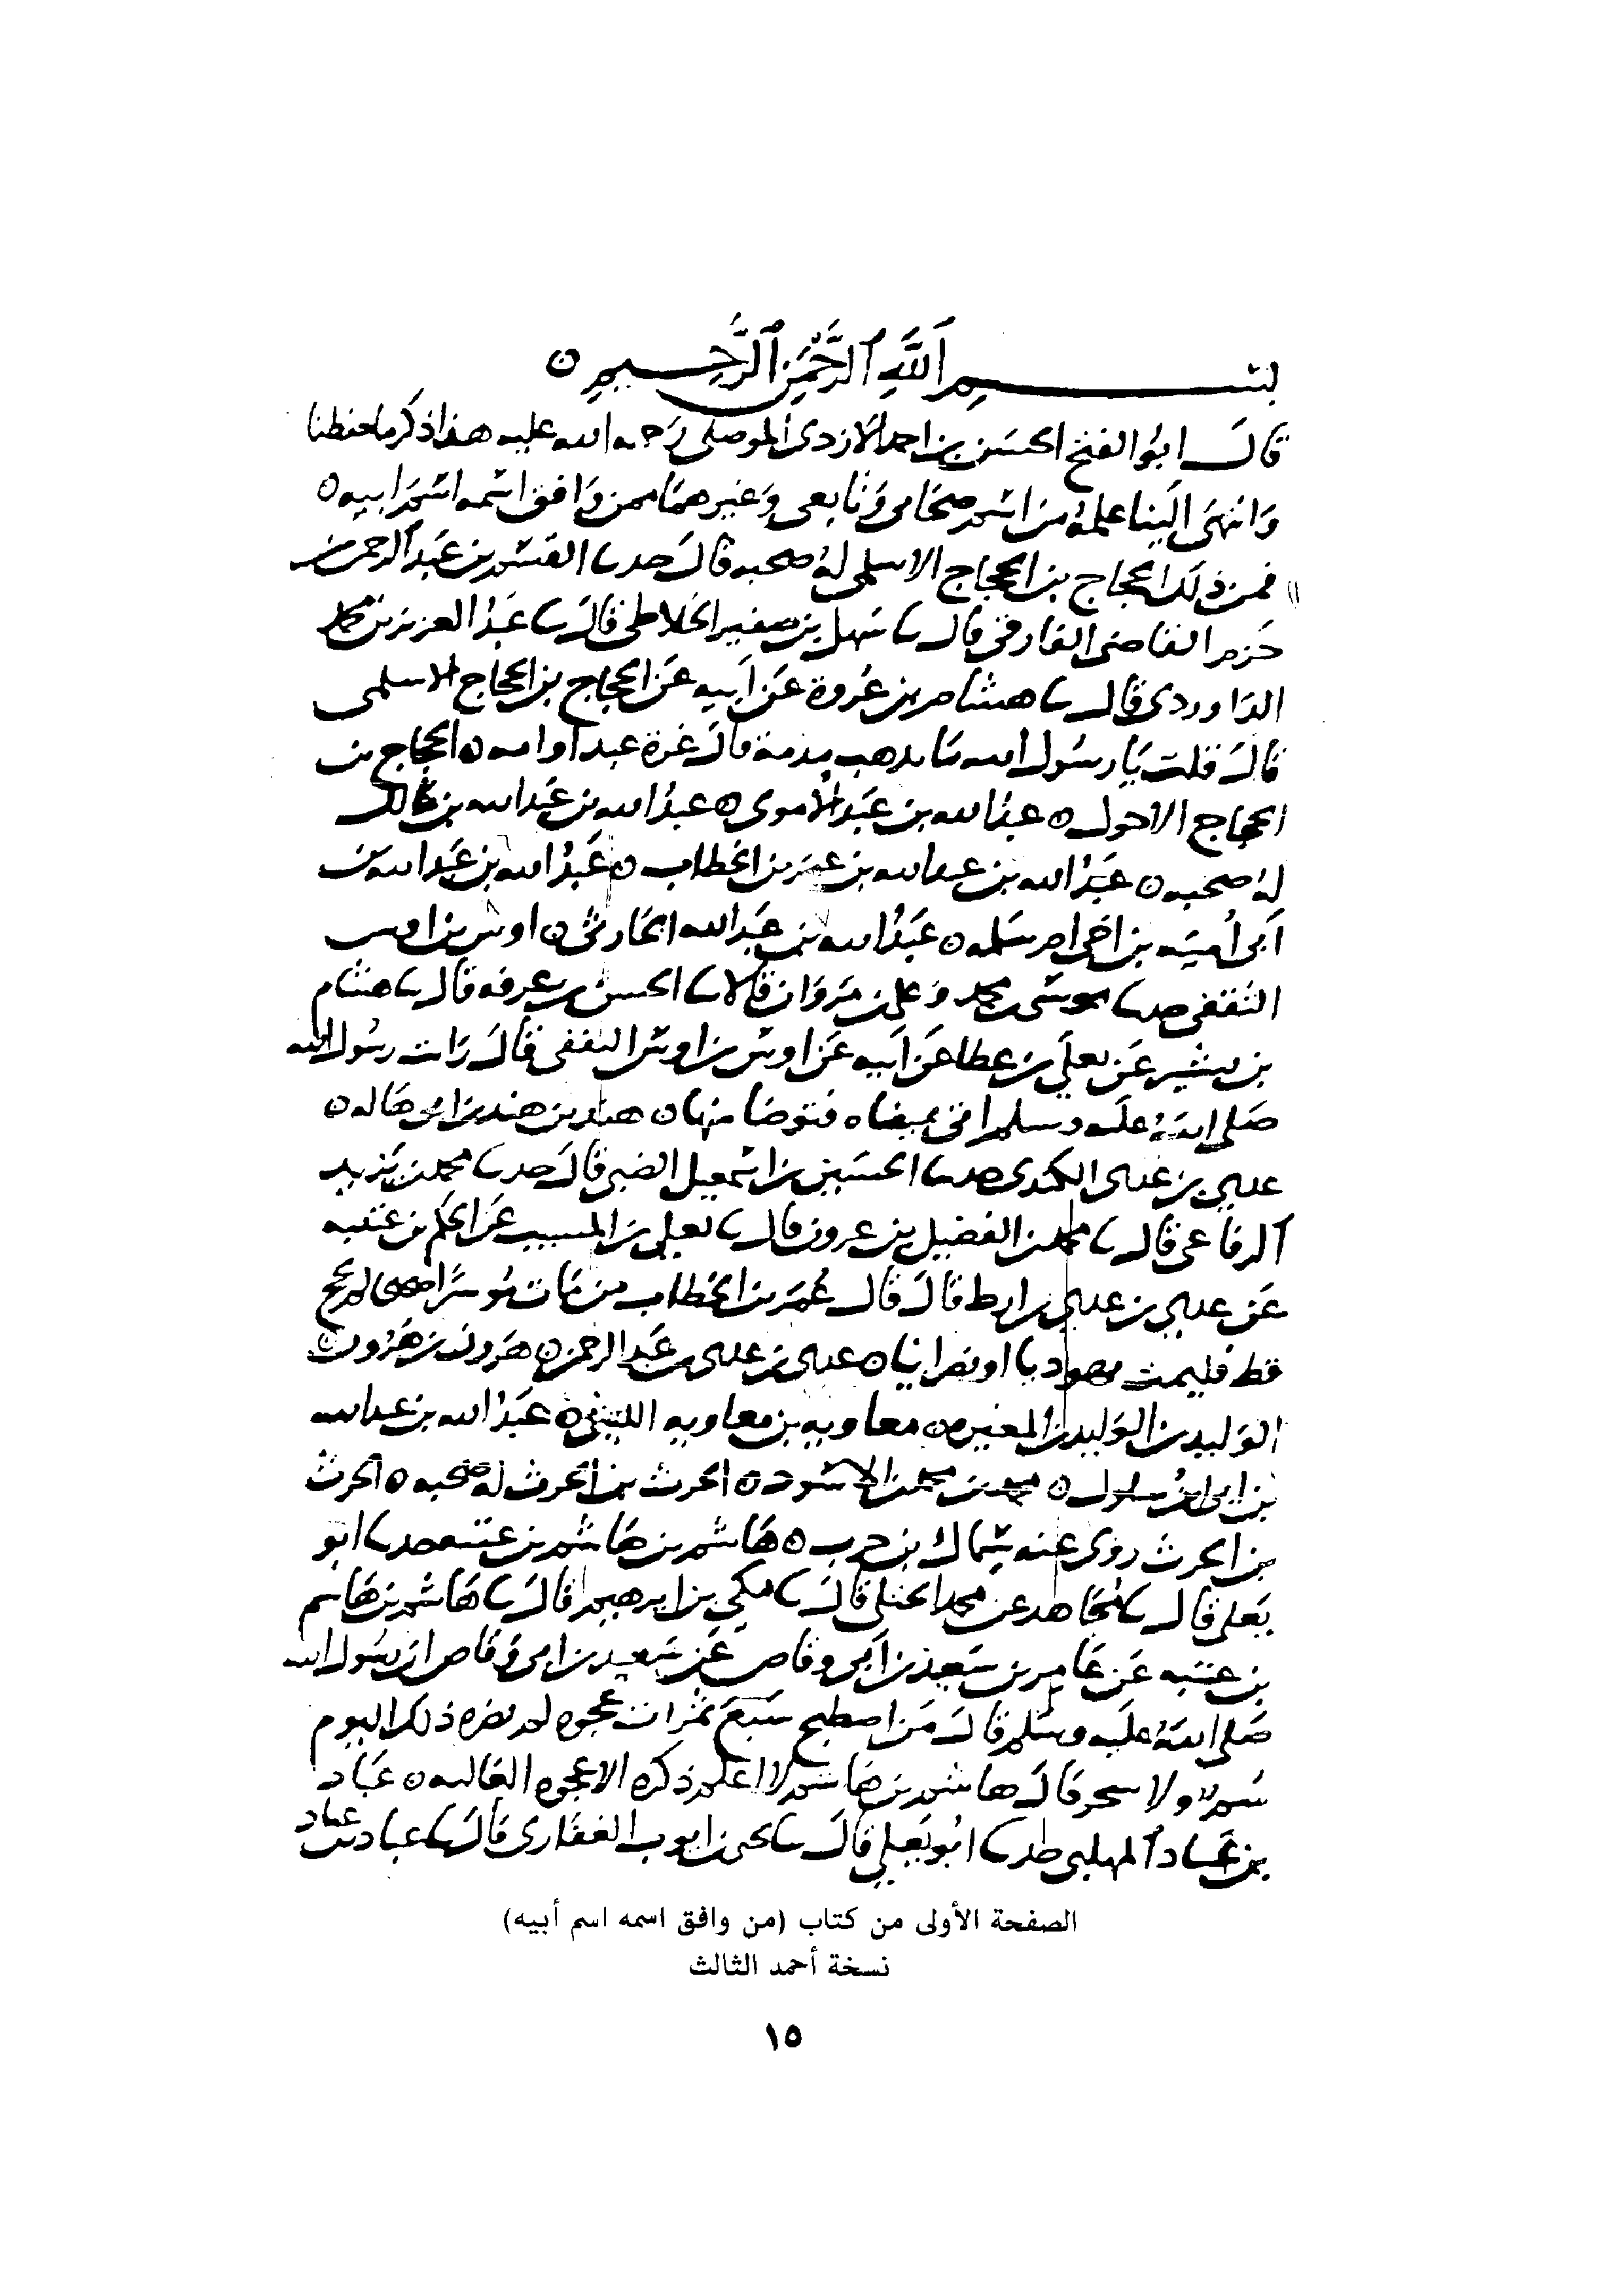 بسم الله الرحمن الرحيم ه
قال ابو الفتح الحسين بن احمد الازدى الموصلي رحمه الله عليه هذا ذكر ما حفظنا
وانتهى الينا علمه من اسم صحابي وتابعي وغيرهما ممن وافق اسمه اسم ابيه ه
فمن ذلك الحجاج بن الحجاج الاسلمي له صحبه قال حدثنا القسم بن عبد الرحمن بن
حزم القاضي الفارقي قال ثنا سهل بن صقير الخلاطي قال ثنا عبد العزيز بن محمد
الدراوردي قال ثنا هشام بن عروة عن ابيه عن الحجاج بن الحجاج الاسلمي
قال قلت يا رسول الله ما يذهب مذمة قال غرة عبد او امه ه الحجاج بن
الحجاج الاحول ه عبد الله بن عبد الاموي ه عبد الله بن عبد الله بن مالك
له صحبه ه عبد الله بن عبد الله بن عمر بن الخطاب ه عبد الله بن عبد الله بن
ابي اميه بن اخي ام سلمه ه عبد الله بن عبد الله الحارثي ه اوس بن اوس
الثقفي حدثنا موسى بن محمد وعلي بن مروان قالا ثنا الحسن بن عرفه قال ثنا هشام
بن بشير عن يعلي بن عطا عن ابيه عن اوس بن اوس الثقفي قال رات رسول الله
صلى الله عليه وسلم اتى ميضاه فتوضا منها ه هند بن هند بن ابي هاله ه
عدي بن عدي الكندي حدثنا الحسين بن اسمعيل الضبي قال حدثنا محمد بن يزيد
الرفاعي قال ثنا محمد بن الفضيل بن غزوان قال ثنا يعلي بن المسيب عن الحكم بن عتيبه
عن عدي بن عدي بن ارط قال قال عمر بن الخطاب من مات موسرا صحيحا لم يحج
قط فليمت يهوديا او نصرانيا ه عدي بن عدي بن عبد الرحمن ه هرون بن هرون ه
الوليد بن الوليد بن المغيره ه معاويه بن معاويه الليثي ه عبد الله بن عبد الله
بن ابي بن سلول ه محمد بن محمد بن الاسود ه الحرث بن الحرث له صحبه ه الحرث
بن الحرث روى عنه سماك بن حرب ه هاشم بن هاشم بن عتبه حدثنا ابو
يعلى قال ثنا مجاهد عن محمد الختلي قال ثنا مكي بن ابرهيم قال ثنا هاشم بن هاشم
بن عتبه عن عامر بن سعد بن ابي وقاص عن سعيد بن ابي وقاص ان رسول الله
صلى الله عليه وسلم قال من اصطبح سبع تمرات عجوه لم يضره ذلك اليوم
سم ولا سحر قال هاشم بن هاشم لا اعلم ذكره الا عجوه العاليه ه عباد
بن عباد المهلبي حدثنا ابو يعلي قال ثنا يحيى بن ايوب الغفاري قال ثنا عباد بن عباد
الصفحة الأولى من كتاب (من وافق اسمه اسم أبيه)
نسخة أحمد الثالث
١٥